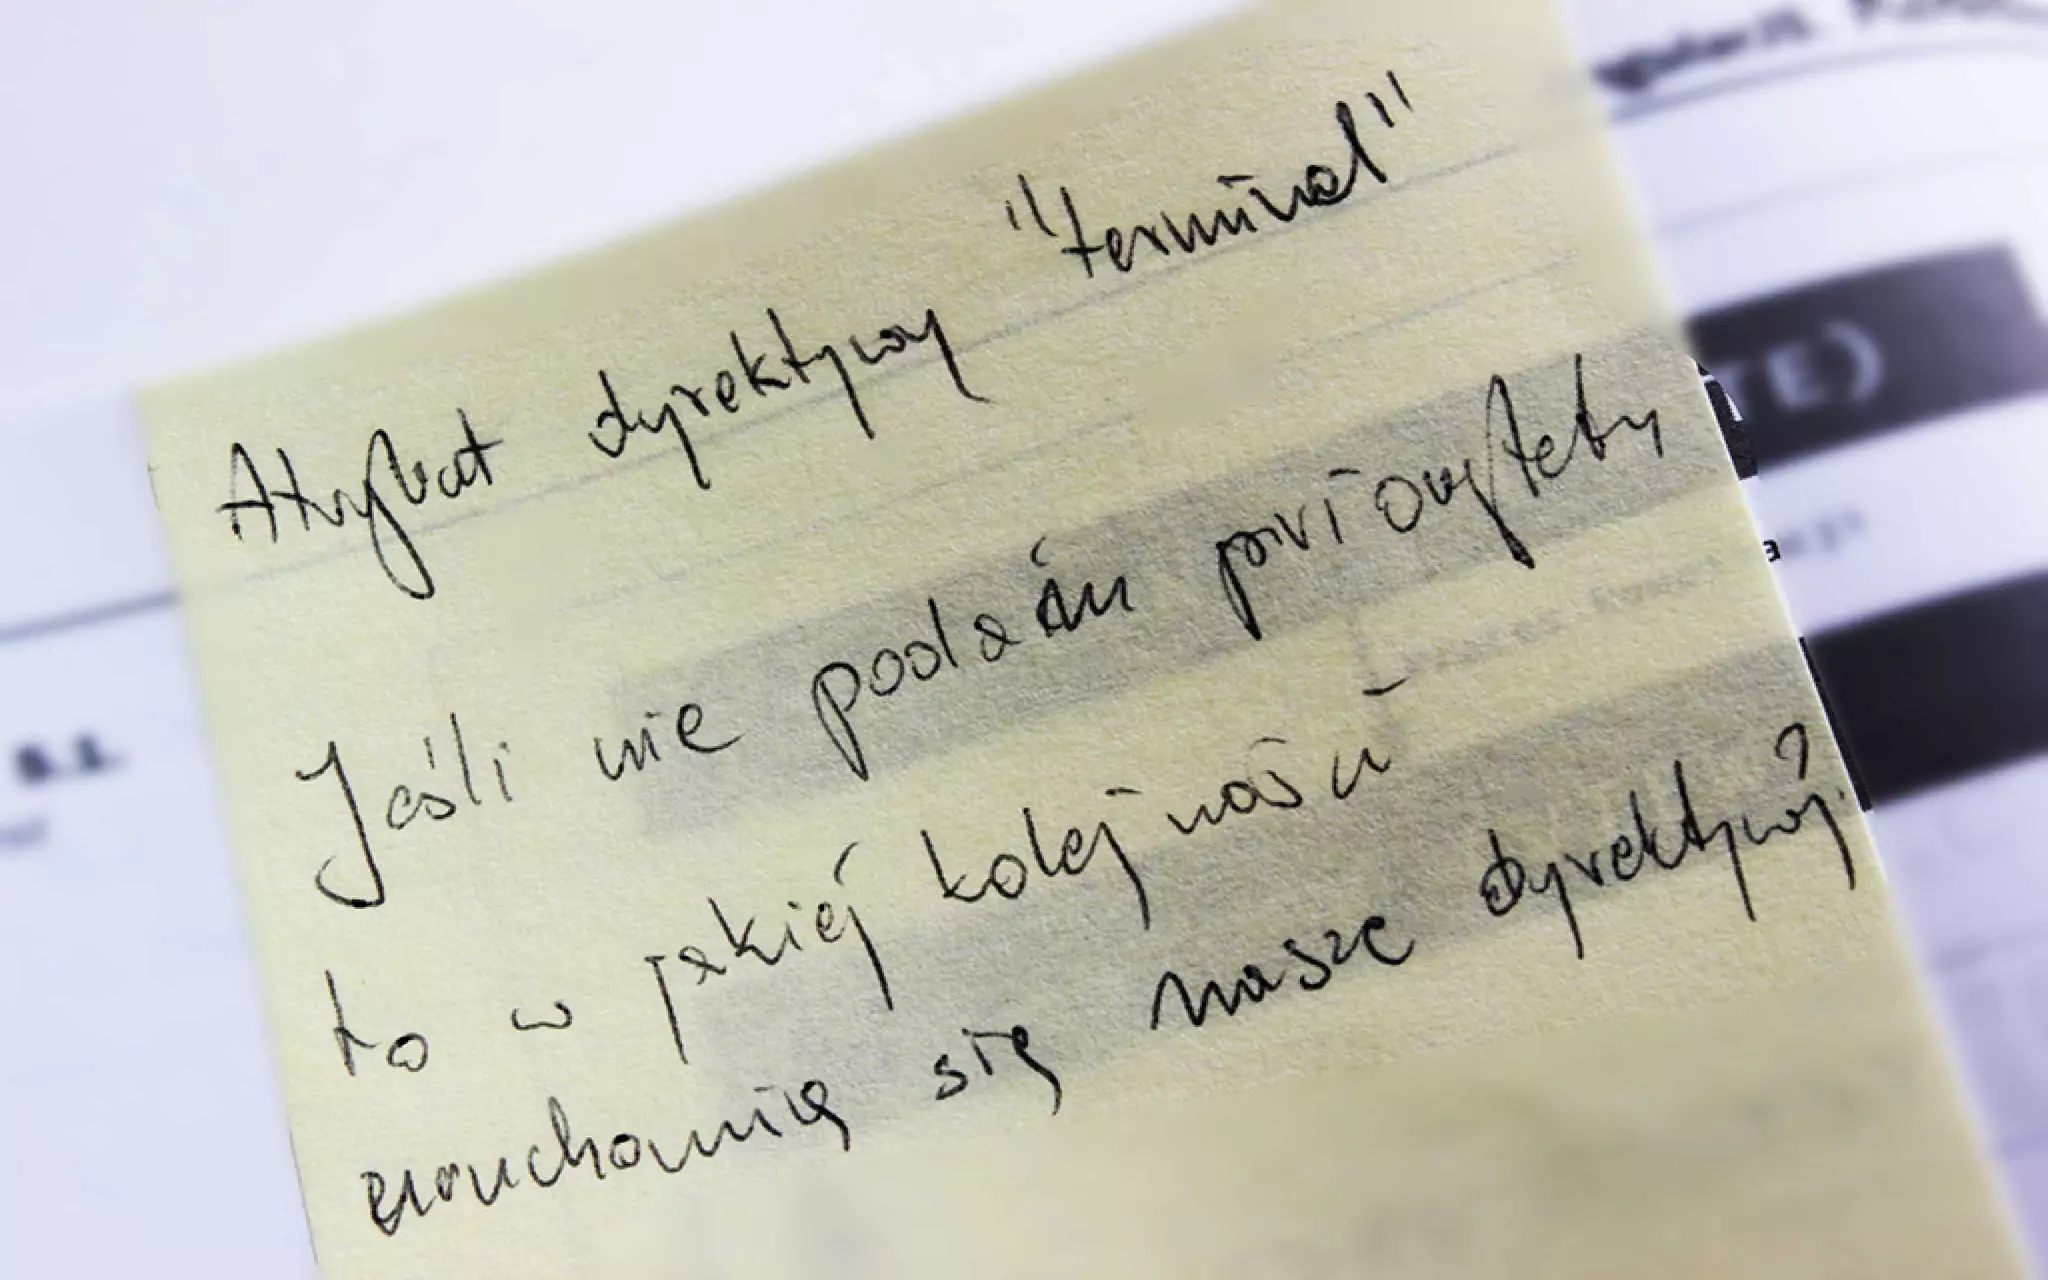 Atrybut dyrektywy "terminal"
TE)
Jeśli nie podam priorytetu
to w jakiej kolejności
uruchomią się nasze dyrektywy?